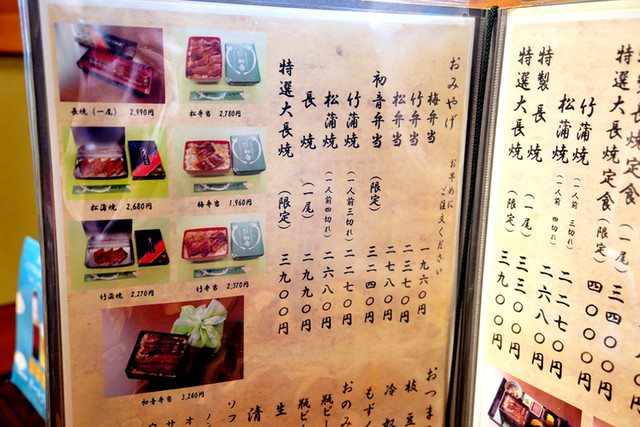 おみやげ
お早めに
ご注文ください
梅弁当 一九六〇円
竹弁当 二三七〇円
松弁当 二七八〇円
初音弁当 (限定) 三二四〇円
竹蒲焼 (一人前三切れ) 二二七〇円
松蒲焼 (一人前四切れ) 二六八〇円
長焼 (一尾) 二九九〇円
特選大長焼 (限定) 三九〇〇円
長焼 (一尾) 2,990円
松弁当 2,780円
松蒲焼 2,680円
梅弁当 1,960円
竹蒲焼 2,270円
竹弁当 2,370円
初音弁当 3,240円
おつま
枝豆
冷奴
もずく
おのみ
瓶ビー
瓶ビ
生
清
ソフ
ノン
オ
サ
長焼定食 (一尾) 三四〇〇円
特選大長焼定食 (限定) 四〇〇〇円
竹蒲焼 (一人前 三切れ) 二二七〇円
松蒲焼 (一人前 四切れ) 二六八〇円
特製長焼 (一尾) 三三〇〇円
特選大長焼 (限定) 三九〇〇円